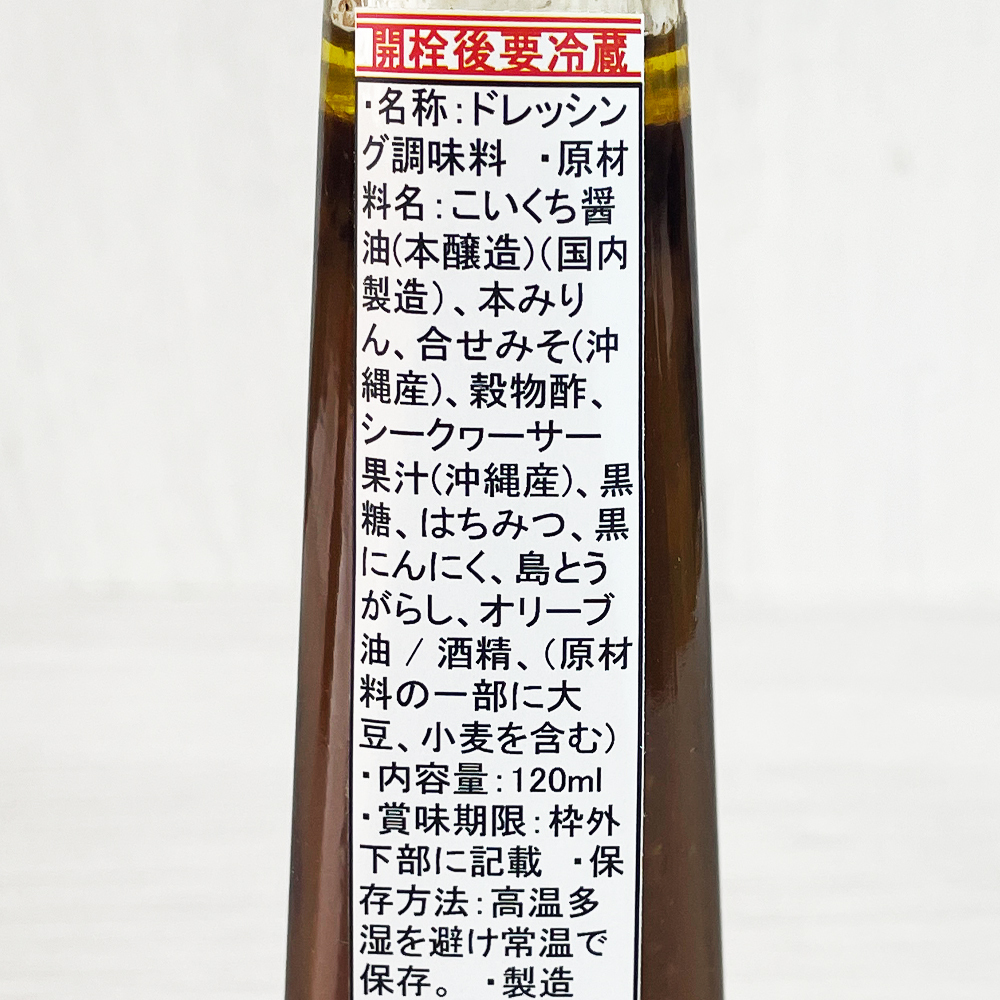 開栓後要冷蔵
・名称：ドレッシン
グ調味料　・原材
料名：こいくち醤
油(本醸造)(国内
製造)、本みり
ん、合せみそ(沖
縄産)、穀物酢、
シークヮーサー
果汁(沖縄産)、黒
糖、はちみつ、黒
にんにく、島とう
がらし、オリーブ
油 / 酒精、(原材
料の一部に大
豆、小麦を含む)
・内容量：120ml
・賞味期限：枠外
下部に記載　・保
存方法：高温多
湿を避け常温で
保存。　・製造